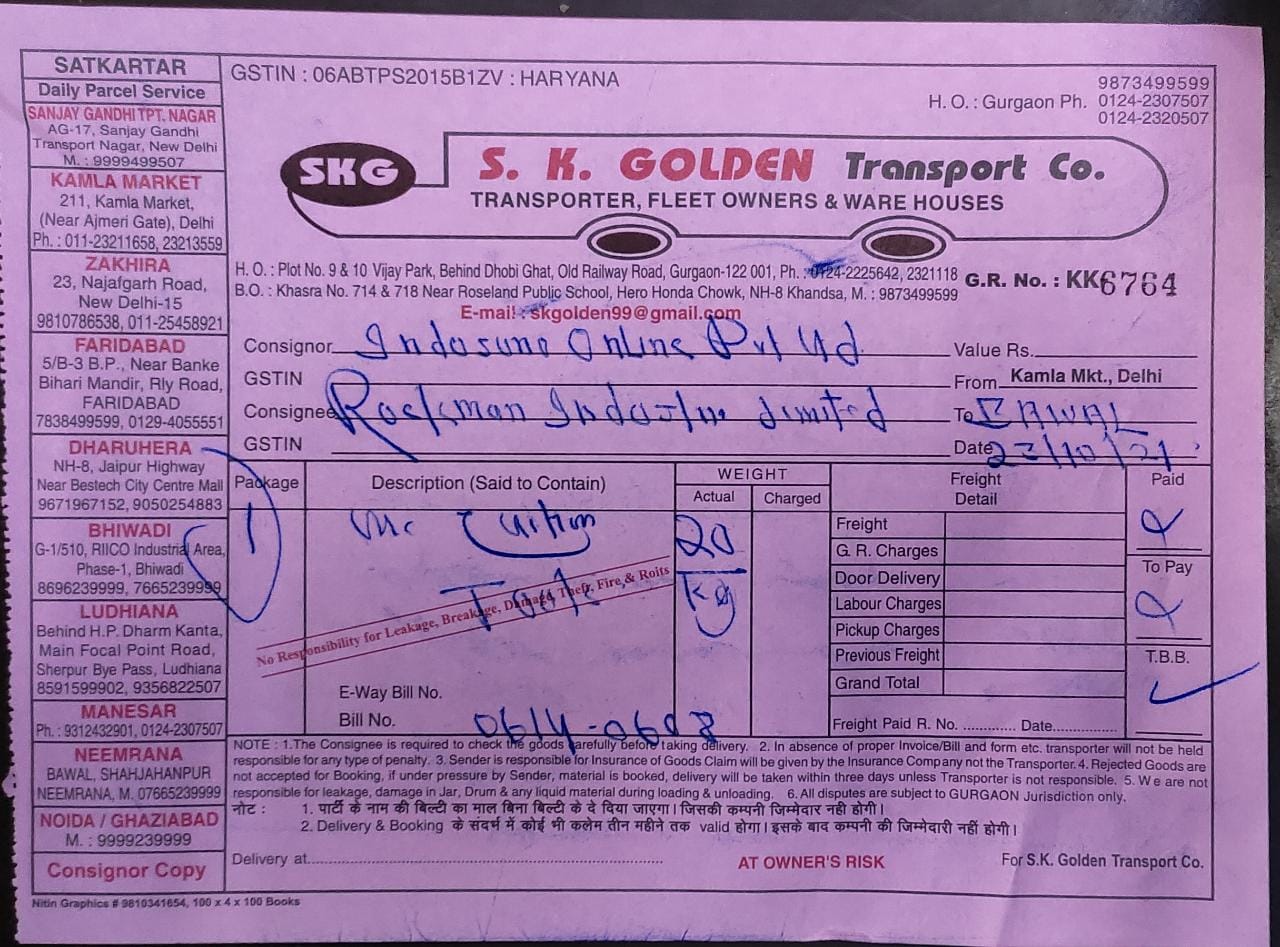 SATKARTAR
Daily Parcel Service
SANJAY GANDHI TPT. NAGAR
AG-17, Sanjay Gandhi
Transport Nagar, New Delhi
M. : 9999499507
KAMLA MARKET
211, Kamla Market,
(Near Ajmeri Gate), Delhi
Ph. : 011-23211658, 23213559
ZAKHIRA
23, Najafgarh Road,
New Delhi-15
9810786538, 011-25458921
FARIDABAD
5/B-3 B.P., Near Banke
Bihari Mandir, Rly Road,
FARIDABAD
7838499599, 0129-4055551
DHARUHERA
NH-8, Jaipur Highway
Near Bestech City Centre Mall
9671967152, 9050254883
BHIWADI
G-1/510, RIICO Industrial Area,
Phase-1, Bhiwadi
8696239999, 7665239999
LUDHIANA
Behind H.P. Dharm Kanta,
Main Focal Point Road,
Sherpur Bye Pass, Ludhiana
8591599902, 9356822507
MANESAR
Ph. : 9312432901, 0124-2307507
NEEMRANA
BAWAL, SHAHJAHANPUR
NEEMRANA, M. 07665239999
NOIDA / GHAZIABAD
M. : 9999239999
Consignor Copy
GSTIN : 06ABTPS2015B1ZV : HARYANA
9873499599
H. O. : Gurgaon Ph. 0124-2307507
0124-2320507
SKG
S. K. GOLDEN Transport Co.
TRANSPORTER, FLEET OWNERS & WARE HOUSES
H. O. : Plot No. 9 & 10 Vijay Park, Behind Dhobi Ghat, Old Railway Road, Gurgaon-122 001, Ph. : 0124-2225642, 2321118
B.O. : Khasra No. 714 & 718 Near Roseland Public School, Hero Honda Chowk, NH-8 Khandsa, M. : 9873499599
G.R. No. : KK6764
E-mail : skgolden99@gmail.com
Consignor Online Pvt Ltd
Value Rs.
GSTIN
From Kamla Mkt., Delhi
Consignee Rockman Limited
To BAWAL
GSTIN
Date /10/21
Package Description (Said to Contain) WEIGHT Freight Detail Paid
Actual Charged
1
20
Kg
Freight
G. R. Charges
Door Delivery
To Pay
Labour Charges
Pickup Charges
Previous Freight
T.B.B.
Grand Total
Freight Paid R. No. ............. Date.............
No Responsibility for Leakage, Breakage, Damage, Theft, Fire & Roits
E-Way Bill No.
Bill No. 0614-0608
NOTE : 1.The Consignee is required to check the goods carefully before taking delivery. 2. In absence of proper Invoice/Bill and form etc. transporter will not be held
responsible for any type of penalty. 3. Sender is responsible for Insurance of Goods Claim will be given by the Insurance Company not the Transporter. 4. Rejected Goods are
not accepted for Booking, if under pressure by Sender, material is booked, delivery will be taken within three days unless Transporter is not responsible. 5. We are not
responsible for leakage, damage in Jar, Drum & any liquid material during loading & unloading. 6. All disputes are subject to GURGAON Jurisdiction only.
नोट : 1. पार्टी के नाम की बिल्टी का माल बिना बिल्टी के दे दिया जाएगा। जिसकी कम्पनी जिम्मेदार नही होगी।
2. Delivery & Booking के संदर्भ में कोई भी कलेम तीन महीने तक valid होगा। इसके बाद कम्पनी की जिम्मेदारी नहीं होगी।
Delivery at..........................................................................
AT OWNER'S RISK
For S.K. Golden Transport Co.
Nitin Graphics # 9810341654, 100 x 4 x 100 Books